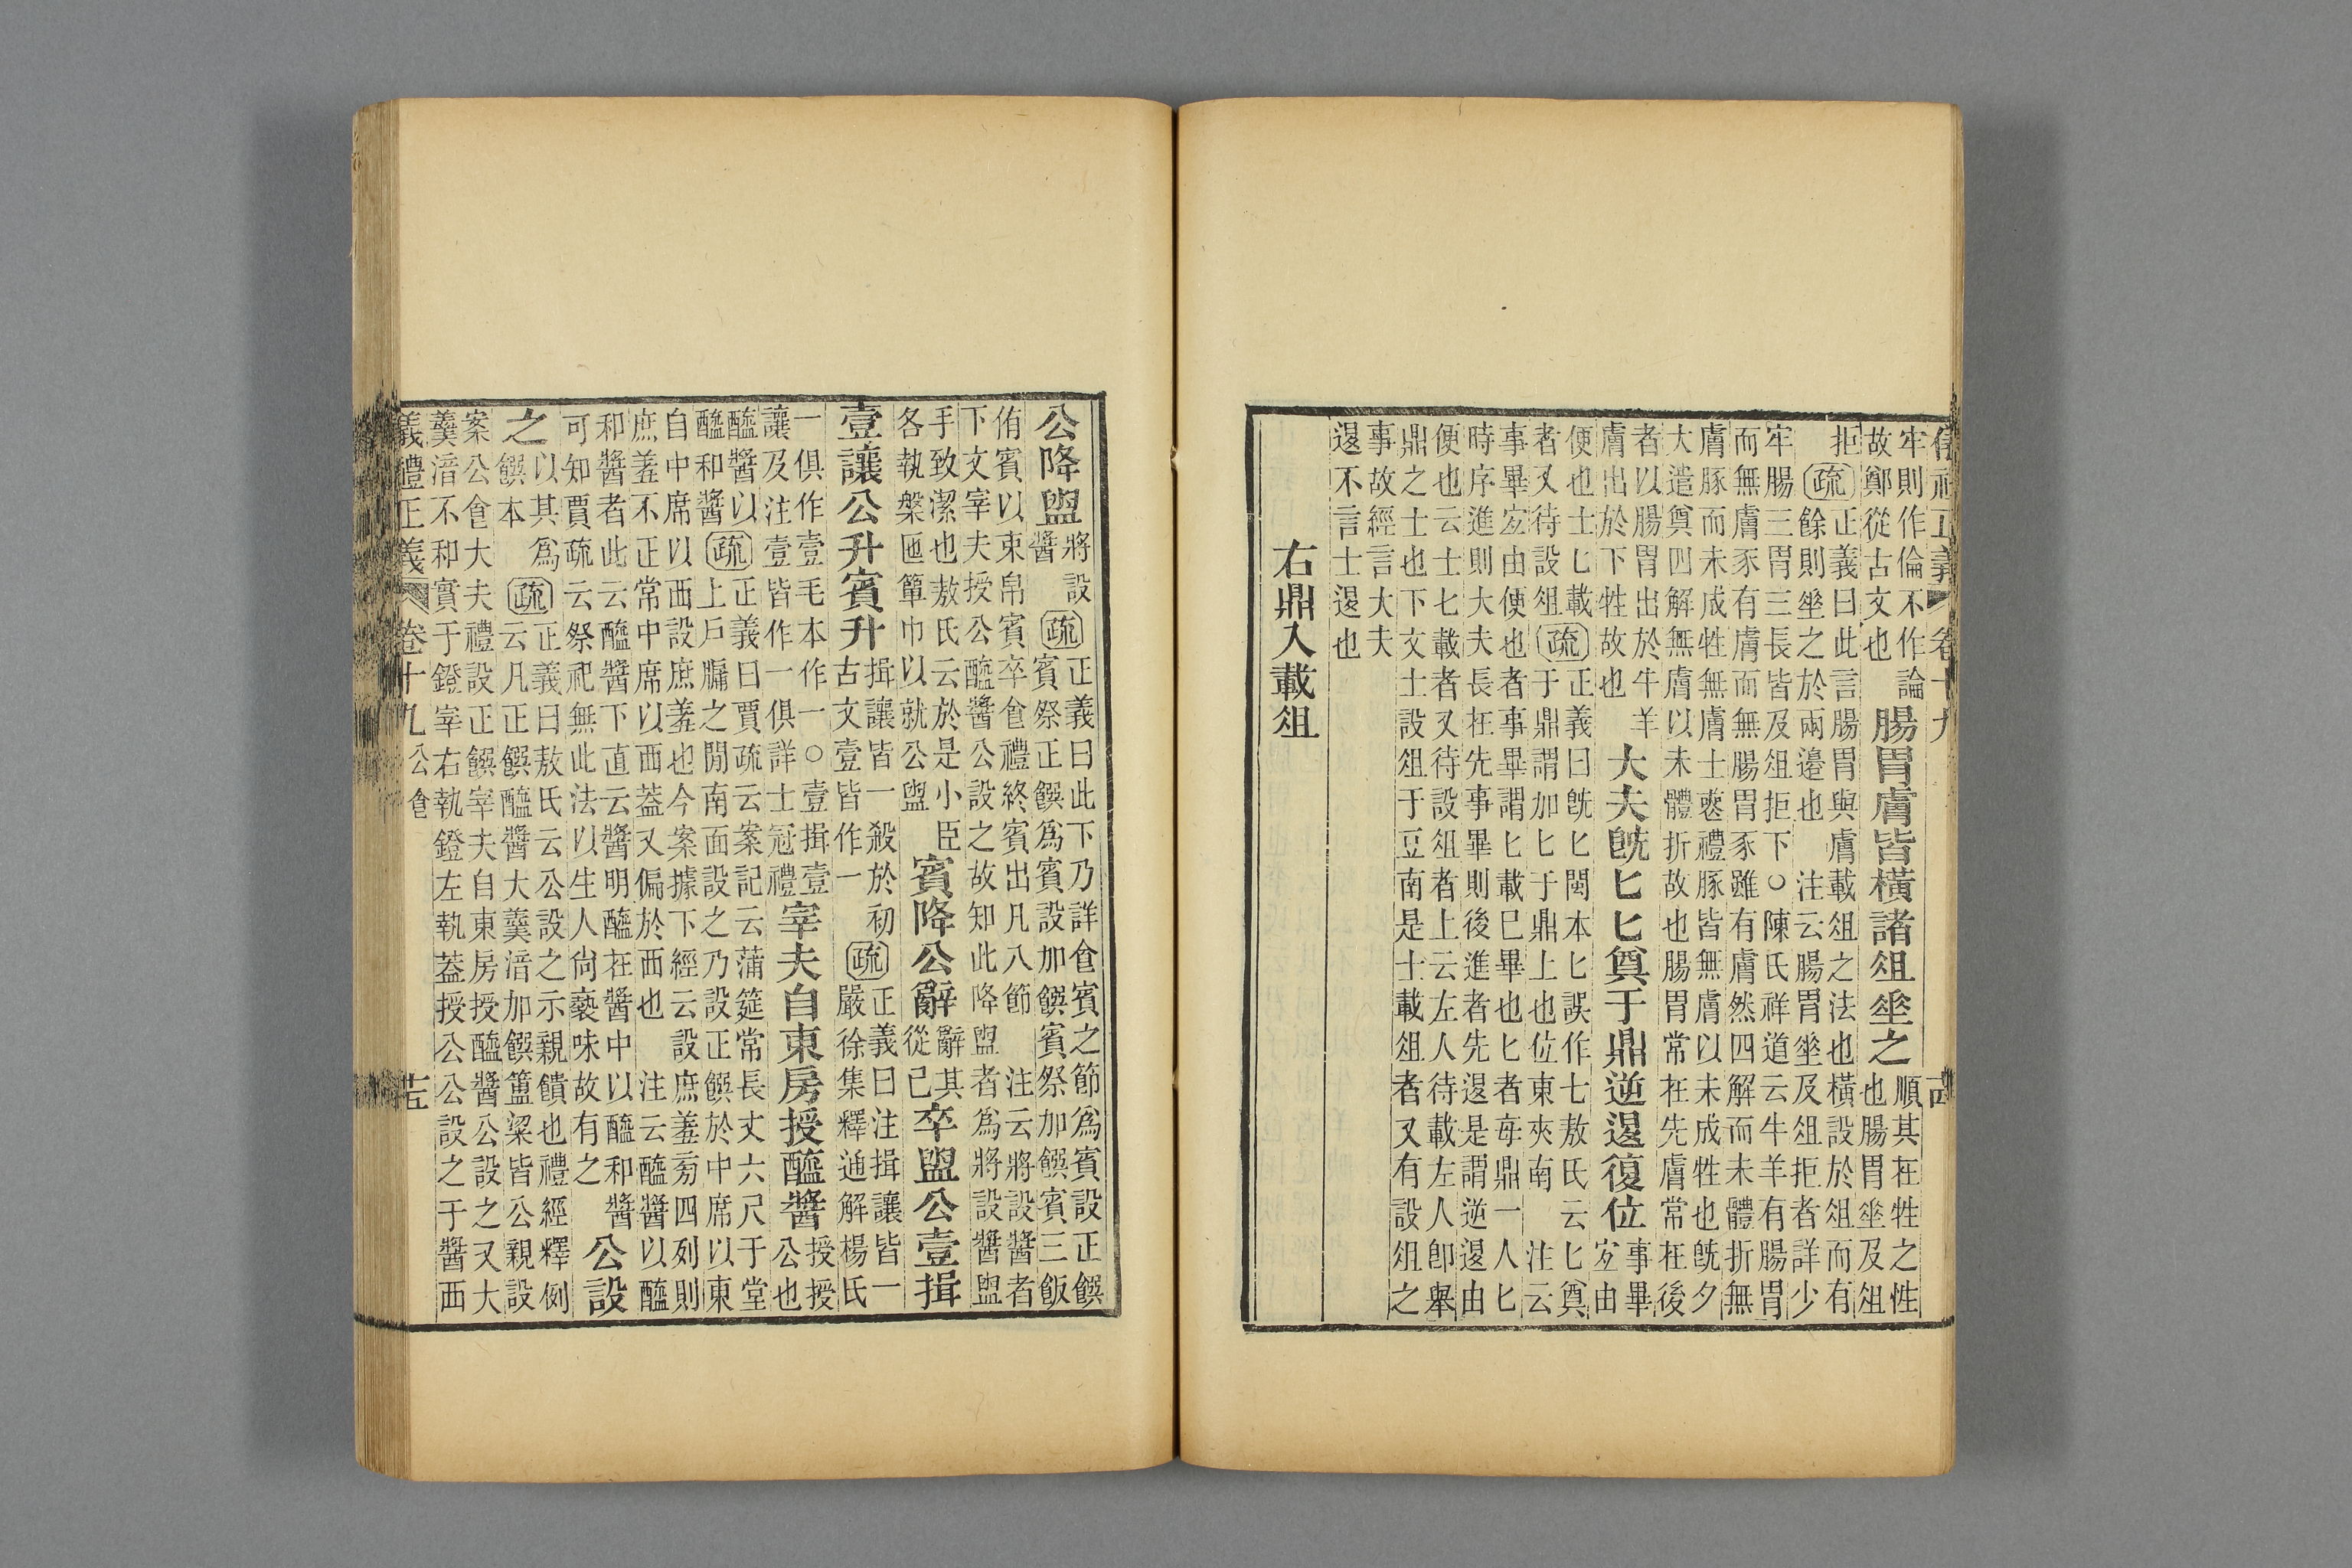 儀禮正義 卷十九 十四
牢則作倫不作論
故鄭從古文也
腸胃膚皆橫諸俎坐之
順其在牲之性
也腸胃坐及俎
拒
疏
正義曰此言腸胃與膚載俎之法也橫設於俎而有
餘則坐之於兩邊也 注云腸胃坐及俎拒者詳少
牢腸三胃三長皆及俎拒下○陳氏祥道云牛羊有腸胃
而無膚豕有膚而無腸胃豕雖有膚然四解而未體折無
膚豚而未成牲無膚士喪禮豚皆無膚以未成牲也旣夕
大遣奠四解無膚以未體折故也腸胃常在先膚常在後
者以腸胃出於牛羊
膚出於下牲故也
大夫旣匕匕奠于鼎逆退復位
事畢
宐由
便也士匕載
者又待設俎
疏
正義曰旣匕閩本匕誤作七敖氏云匕奠
于鼎謂加匕于鼎上也位東夾南 注云
事畢宐由便也者事畢謂匕載已畢也匕者每鼎一人匕
時序進則大夫長在先事畢則後進者先退是謂逆退由
便也云士匕載者又待設俎者上云左人待載左人卽舉
鼎之士也下文士設俎于豆南是士載俎者又有設俎之
事故經言大夫
退不言士退也
右鼎入載俎
公降盥
將設
醬
疏
正義曰此下乃詳食賓之節為賓設正饌
賓祭正饌為賓設加饌賓祭加饌賓三飯
侑賓以束帛賓卒食禮終賓出凡八節 注云將設醬者
下文宰夫授公醯醬公設之故知此降盥者為將設醬盥
手致潔也敖氏云於是小臣
各執槃匜簞巾以就公盥
賓降公辭
辭其
從己
卒盥公壹揖
壹讓公升賓升
揖讓皆一殺於初
古文壹皆作一
疏
正義曰注揖讓皆一
嚴徐集釋通解楊氏
一俱作壹毛本作一○壹揖壹
讓及注壹皆作一俱詳士冠禮
宰夫自東房授醯醬
授授
公也
醯醬以
醯和醬
疏
正義曰賈疏云案記云蒲筵常長丈六尺于堂
上戶牖之閒南面設之乃設正饌於中席以東
自中席以西設庶羞也今案據下經云設庶羞旁四列則
庶羞不正常中席以西蓋又偏於西也 注云醯醬以醯
和醬者此云醯醬下直云醬明醯在醬中以醯和醬
可知賈疏云祭祀無此法以生人尙褻味故有之
公設
之
以其為
饌本
疏
正義曰敖氏云公設之示親饋也禮經釋例
云凡正饌醯醬大羹湆加饌簠粱皆公親設
案公食大夫禮設正饌宰夫自東房授醯醬公設之又大
羹湆不和實于鐙宰右執鐙左執蓋授公公設之于醬西
義禮正義 卷十九公食 十五